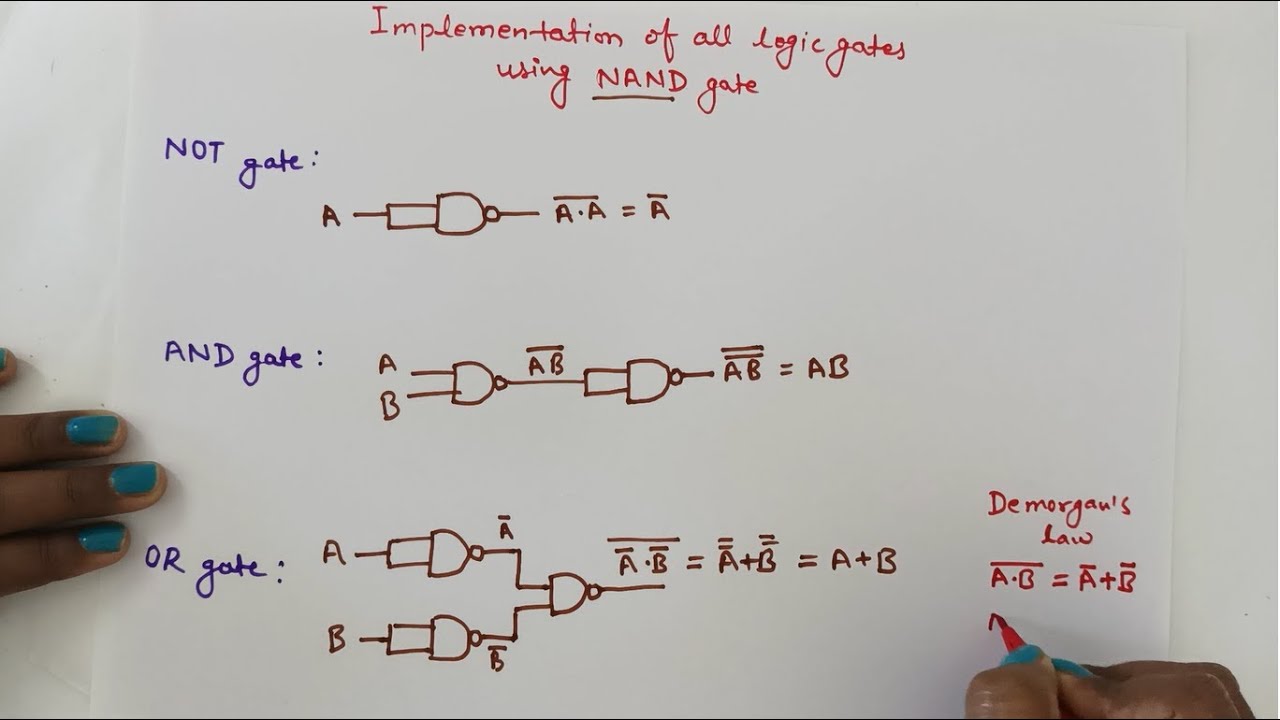 Implementation of all logic gates
using NAND gate
NOT gate:
A A̅·̅A̅ = A̅
AND gate:
A
B
A̅B̅
A̿B̿ = AB
OR gate:
A
A̅
B
B̅
\overline{A̅·B̅} = A̿+B̿ = A+B
Demorgan's
law
A̅·̅B̅ = A̅+B̅